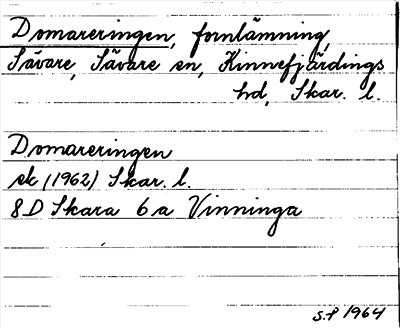 Domareringen, fornlämning,
Sävare, Sävare sn, Kinnefjärdings
hd, Skar. l.
Domareringen
ek (1962) Skar. l.
8D Skara 6a Vinninga
S.P 1964